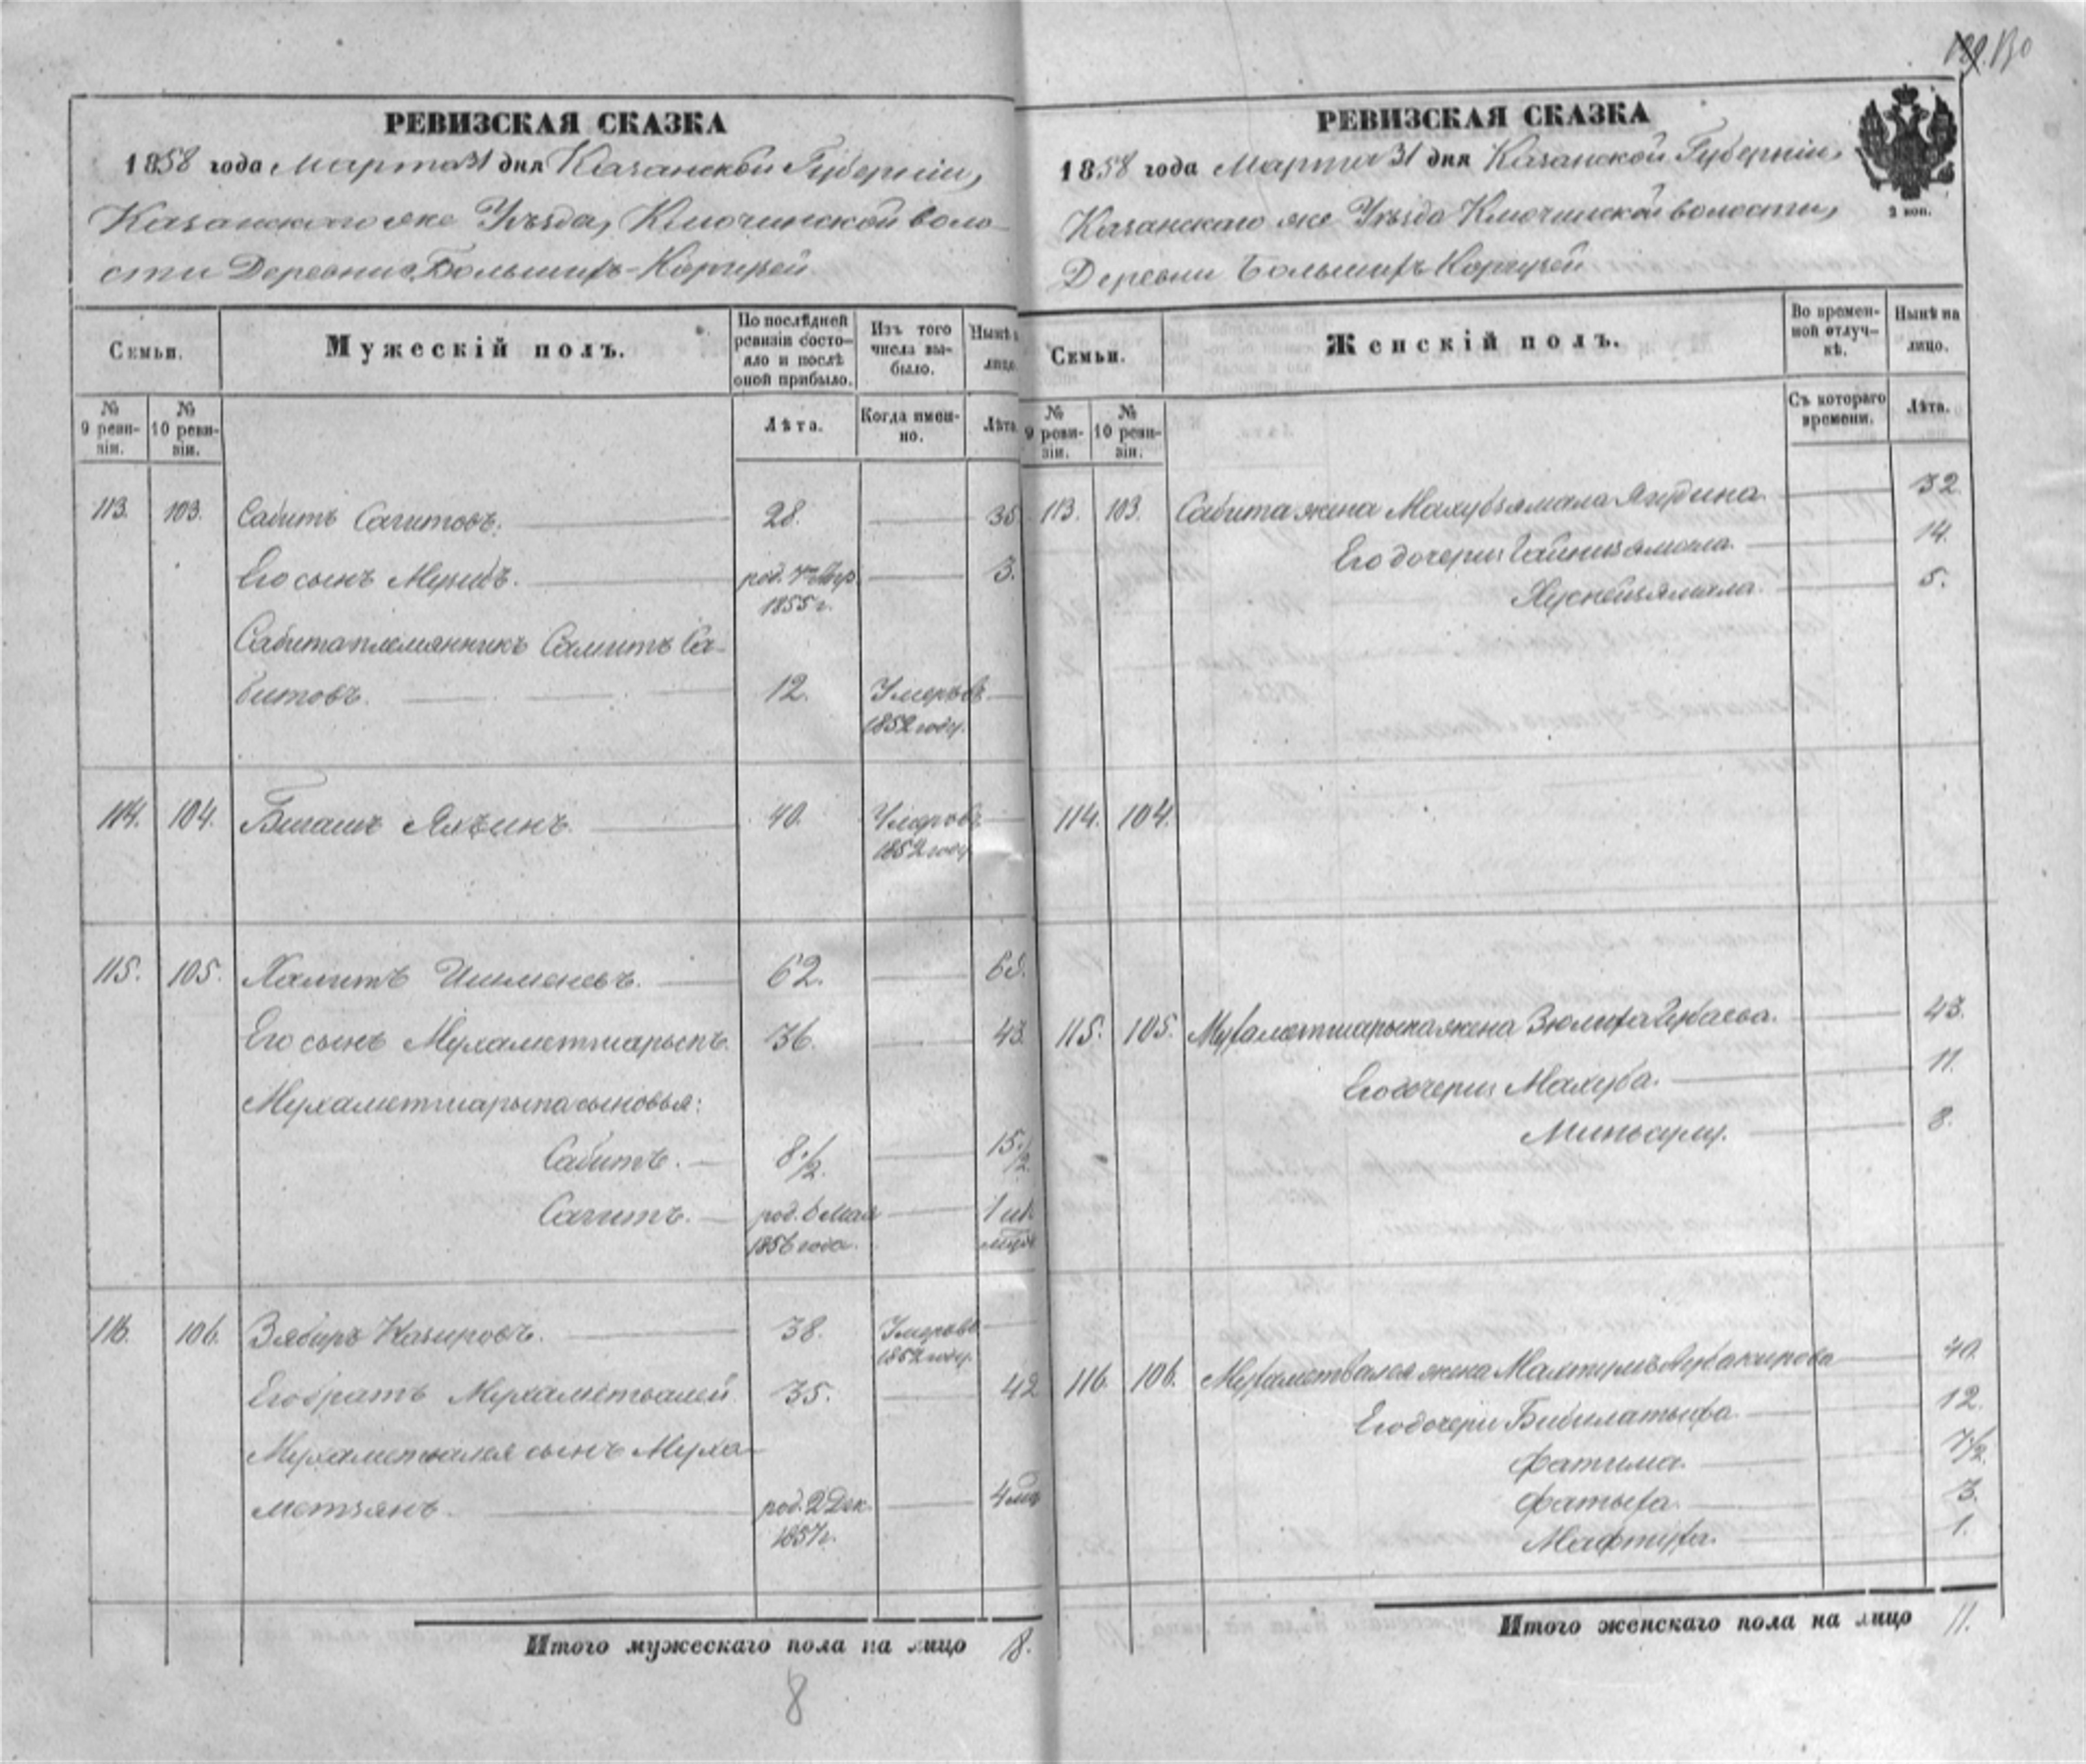 130
РЕВИЗСКАЯ СКАЗКА
1858 года Марта 31 дня Казанской Губерніи,
Казанскаго же Уѣзда, Ключинской воло-
сти Деревни Большихъ-Коргузей
Семьи.
Мужескій полъ.
По послѣдней ревизіи состо-яло и послѣ оной прибыло.
Изъ того числа вы-было.
Нынѣ на лицо.
№ 9 реви-зіи.
№ 10 реви-зіи.
Лѣта.
Когда имен-но.
Лѣта.
113. 103. Сабитъ Сагитовъ. 28. 35.
Его сынъ 3.
род.
1855 г.
Сабита племянникъ Самитъ Са-
битовъ. 12. Умеръ въ
1852 году.
114. 104. Бикашъ 40. Умеръ въ
1852 году
115. 105. Хамитъ Ишменевъ. 62. 69.
Его сынъ Мухаметшарыпъ. 36. 43.
Мухаметшарыпа сыновья:
Сабитъ. 8 1/2. 15 1/2.
Сагитъ. род. 6 Мая
1856 года.
116. 106. Зябиръ Кагировъ. 38. Умеръ въ
1852 году.
Его братъ Мухаметвалей 35. 42
Мухаметвалея сынъ Муха-
метзянъ. род. 2 Дек.
1857 г.
Итого мужескаго пола на лицо 8.
8
РЕВИЗСКАЯ СКАЗКА
1858 года Марта 31 дня Казанской Губерніи,
Казанскаго же Уѣзда Ключинской волости,
Деревни Большихъ Коргузей
2 коп.
Семьи.
Женскій полъ.
Во времен-ной отлуч-кѣ.
Нынѣ на лицо.
№ 9 реви-зіи.
№ 10 реви-зіи.
Съ котораго времени.
Лѣта.
113. 103. Сабита жена Махубзямала Ягудина 32.
Его дочери: Гайнизямала. 14.
Хуснебзямала. 5.
114. 104.
115. 105. Мухаметшарыпа жена Зюлифа Губаева. 43.
Его дочери: Махуба. 11.
Миньсулу. 8.
116. 106. Мухаметвалея жена Абубакирова 40.
Его дочери Бибилатыфа. 12.
Фатима. 7 1/2.
Фатыха. 3.
Мафтуха. 1.
Итого женскаго пола на лицо 11.